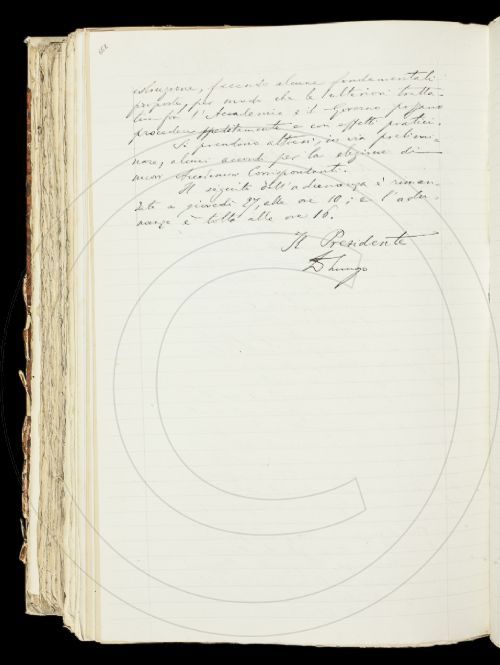 istruzione, facendo alcune fondamentali
proposte, per modo che le ulteriori tratta-
tive fra l'Accademia e il Governo possano
procedere speditamente e con effetti pratici.
Si prendono altresì, in via prelimi-
nare, alcuni accordi per la elezione di
nuovi Accademici Corrispondenti.
Il seguito dell'adunanza è riman-
dato a giovedì 27, alle ore 10; e l'adu-
nanza è tolta alle ore 16.
Il Presidente